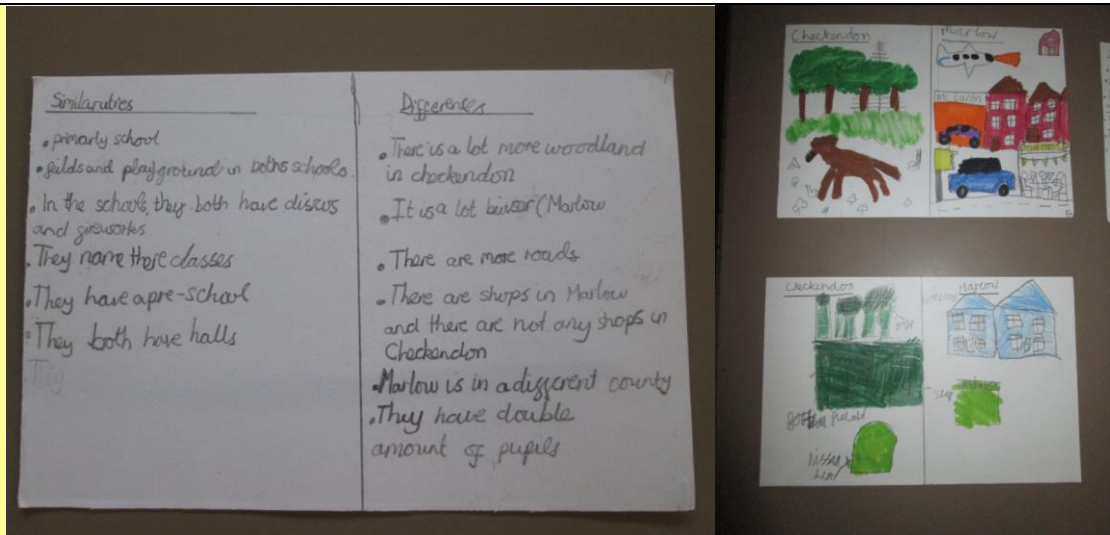 Similaruties
• primarly school
• feilds and playground in boths schools.
• In the schools, they both have discos
and fireworks
• They name there classes
• They have a pre-school
• They both have halls
They
Differences
• There is a lot more woodland
in checkendon
• It is a lot bigger (Marlow
• There are more roads
• There are shops in Marlow
and there are not any shops in
Checkendon
• Marlow is in a different county
• They have double
amount of pupils
Checkendon
Marlow
Mc Laren
Checkendon
Marlow